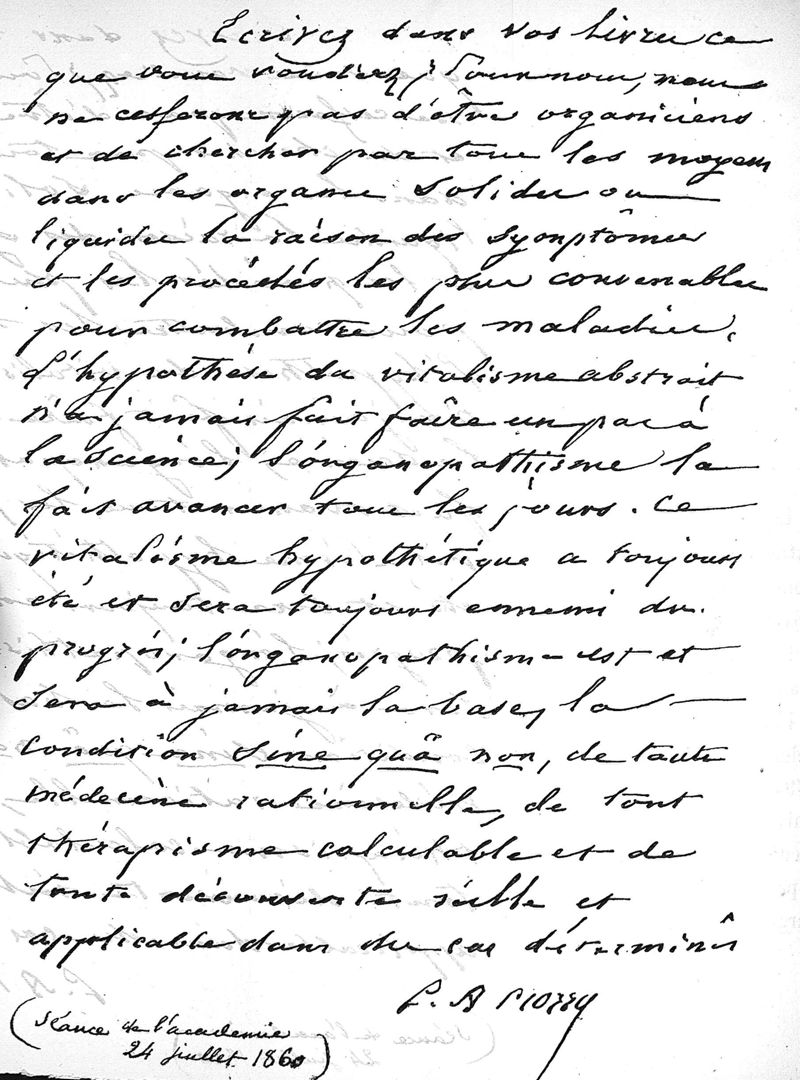 Ecrivez dans vos livres ce
que vous voudrez, Pour nous, nous
ne cesserons pas d'être organiciens
et de chercher par tous les moyens
dans les organes solides ou
liquides la raison des symptômes
et les procédés les plus convenables
pour combattre les maladies.
L'hypothése du vitalisme abstrait
n'a jamais fait faire un pas à
la science; l'organopathisme la
fait avancer tous les jours. Ce
vitalisme hypothétique a toujours
été et sera toujours ennemi du
progrès; l'organopathisme est et
sera à jamais la base, la
condition sine quâ non, de toute
médecine rationnelle, de tout
thérapisme calculable et de
toute découverte réelle et
applicable dans des cas déterminés
P. A Piorry
(Séance de l'academie
24 juillet 1860)